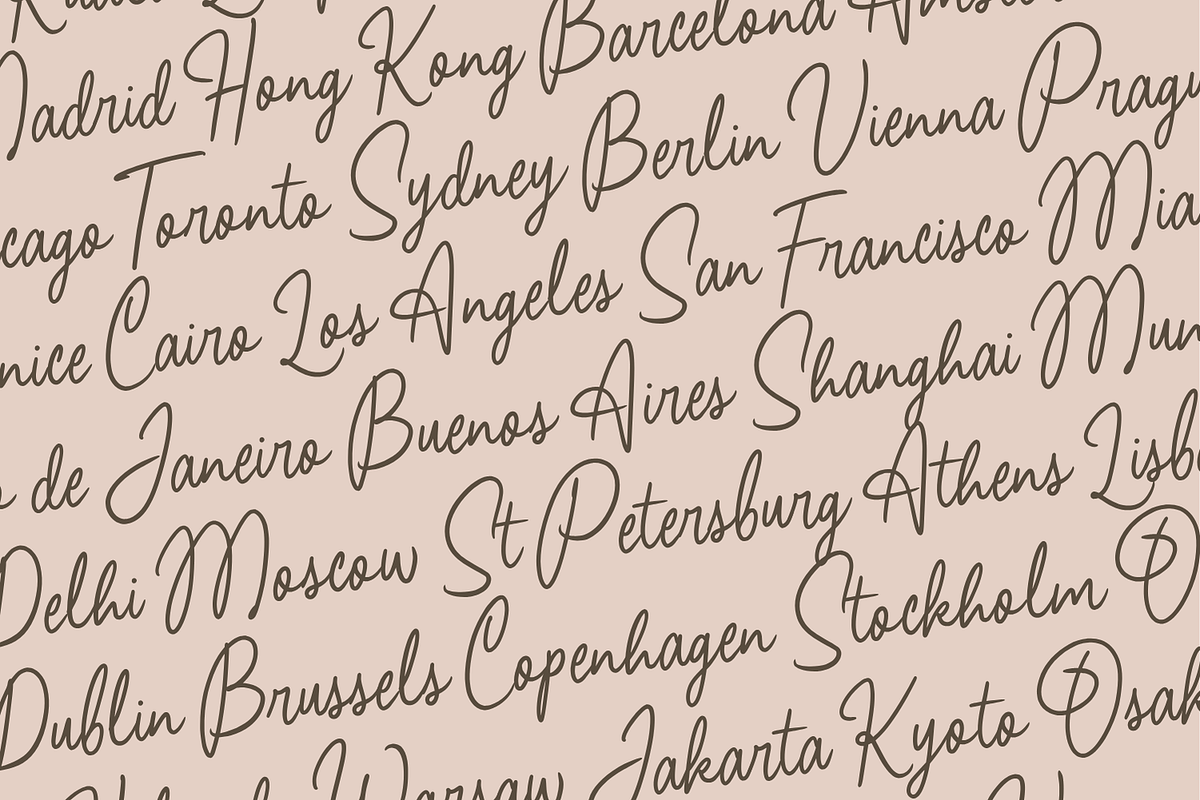 Madrid Hong Kong Barcelona
cago Toronto Sydney Berlin Vienna Pragu
nice Cairo Los Angeles San Francisco Mia
de Janeiro Buenos Aires Shanghai Mun
Delhi Moscow St Petersburg Athens Lisb
Dublin Brussels Copenhagen Stockholm O
Warsaw Jakarta Kyoto Osak